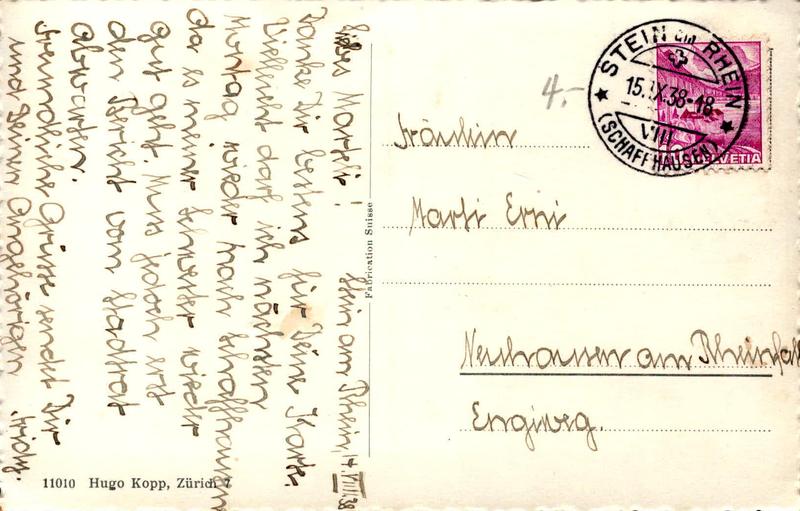 Stein am Rhein, 14.VIII.38
Liebes Marteli!
Danke Dir bestens für Deine Karte.
Vielleicht darf ich nächsten
Montag wieder nach Schaffhausen
da es meiner Schwester wieder
gut geht. Muss jedoch erst
den Bericht vom Stadtrat
abwarten.
Freundliche Grüsse sendet Dir
und Deinen Angehörigen
11010 Hugo Kopp, Zürich 7
Fabrication Suisse
4.-
STEIN am RHEIN
38-18
VIII
(SCHAFFHAUSEN)
HELVETIA
Fräulein
Marti Erni
Neuhausen am Rheinfall
Engiweg.